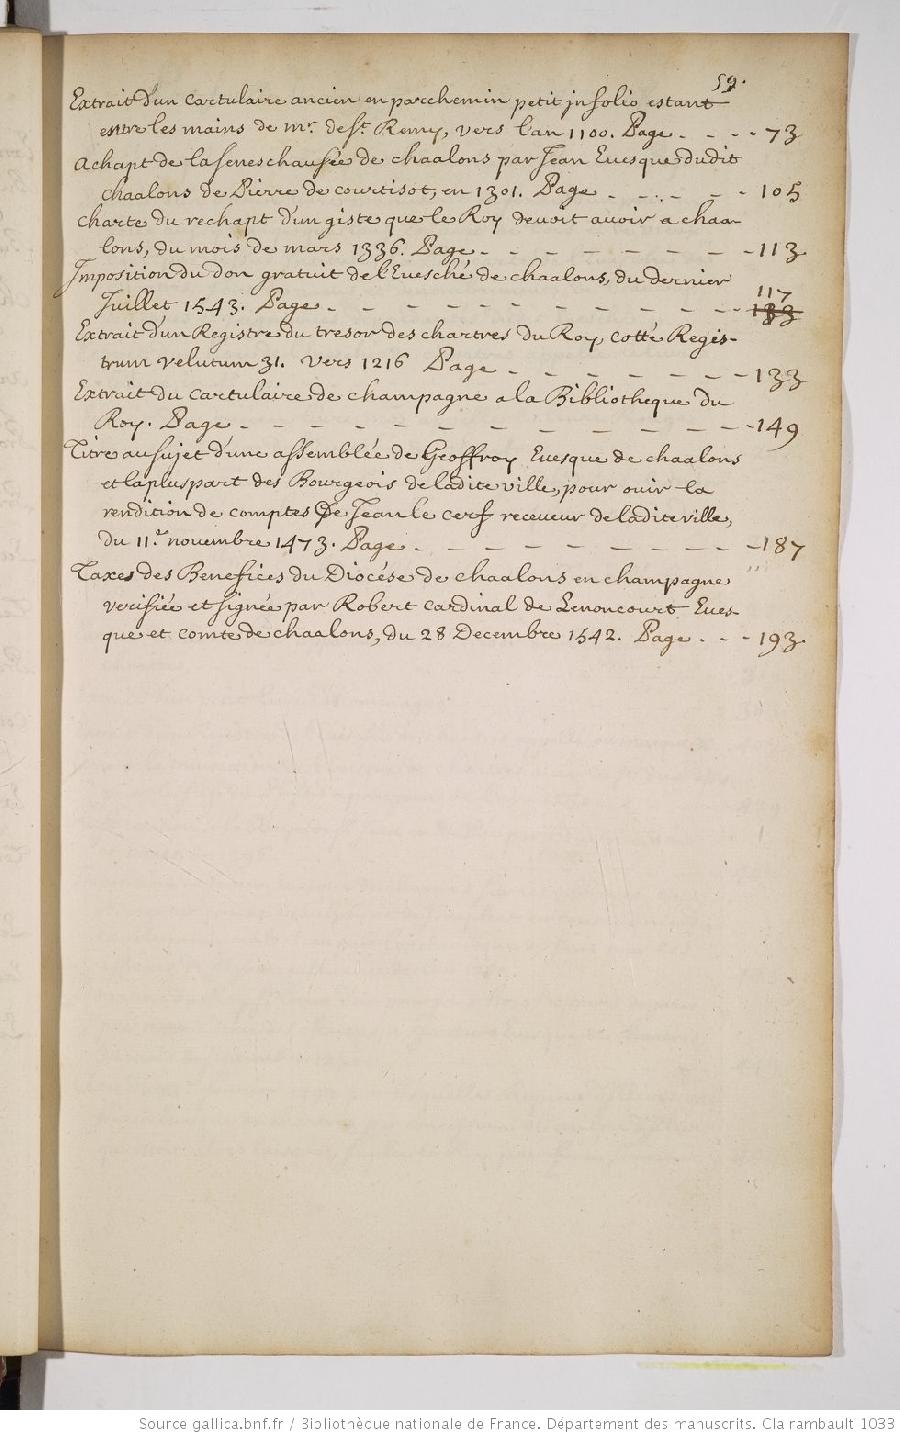 59.
Extrait d'un cartulaire ancien en parchemin petit in folio estant
entre les mains de mr. de St. Remy, vers l'an 1100. Page - - - 73
Achapt de la seneschausée de chaalons par Jean Evesque dudit
chaalons de Pierre de courtisot, en 1301. Page - - - - - 105
charte du rechapt d'un giste que le Roy devoit avoir a chaa-
lons, du mois de mars 1336. Page - - - - - - - - 113
Imposition du don gratuit de l'Euesché de chaalons, du dernier
117
Juillet 1543. Page - - - - - - - - - - 133
Extrait d'un Registre du tresor des chartres du Roy, cotté Regis-
trum velutum 31. vers 1216 Page - - - - - - - 133
Extrait du cartulaire de champagne a la Bibliotheque du
Roy. Page - - - - - - - - - - - - 149
Titre au sujet d'une assemblée de Geoffroy Euesque de chaalons
et la pluspart des Bourgeois de ladite ville, pour ouir la
rendition de comptes de Jean le cerf receveur de ladite ville,
du 11e. novembre 1473. Page - - - - - - - - - 187
Taxes des Benefices du Diocése de chaalons en champagne "
verifiée et signée par Robert cardinal de Lenoncourt Eues-
que et comte de chaalons, du 28 Decembre 1542. Page - - - 193
Source gallica.bnf.fr / Bibliothèque nationale de France. Département des manuscrits. Clairambault 1033